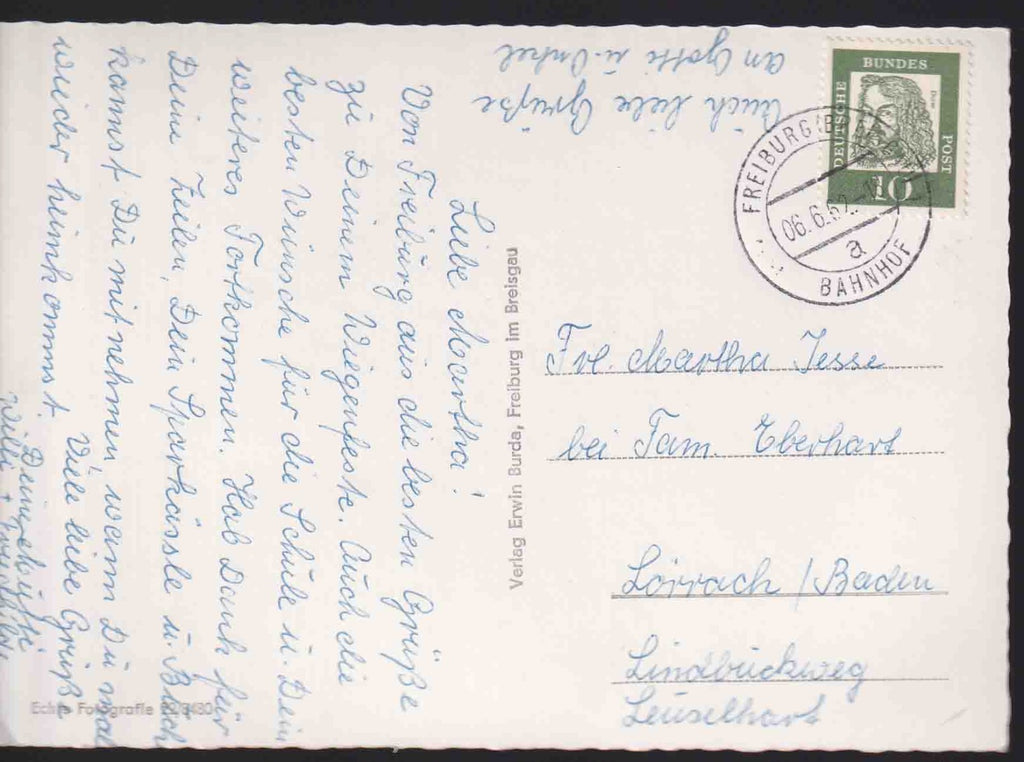 Liebe Martha!
Von Freiburg aus die besten Grüße
zu Deinem Wiegenfeste. Auch die
besten Wünsche für die Schule u. Dein
weiteres Fortkommen. Hab Dank für
Deine Zeilen, Dein Sparkässle u. Büch
kannst Du mitnehmen, wann Du mal
wieder heimkommst.
Viele liebe Grüße
Deine
Willi +
Auch liebe Grüße
an Gotti u. Onkel
Verlag Erwin Burda, Freiburg im Breisgau
Echte Fotografie
DEUTSCHE BUNDES POST
10
FREIBURG (B
06.6.62
a
BAHNHOF
Frl. Martha Jesse
bei Fam. Eberhart
Lörrach / Baden
Lindbückweg
Leuselhart